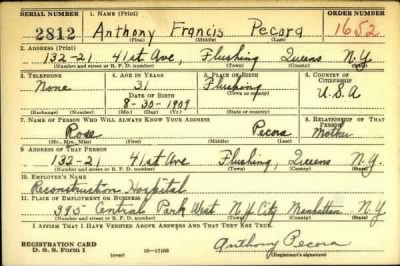 SERIAL NUMBER 1. NAME (Print) ORDER NUMBER
2812 Anthony Francis Pecora 1652
(First) (Middle) (Last)
2. ADDRESS (Print)
132-21 41st Ave, Flushing Queens N.Y.
(Number and street or R. F. D. number) (Town) (County) (State)
3. TELEPHONE 4. AGE IN YEARS 5. PLACE OF BIRTH 6. COUNTRY OF CITIZENSHIP
None 31 Flushing U.S.A
DATE OF BIRTH (Town or county)
8-30-1909
(Exchange) (Number) (Mo.) (Day) (Yr.) (State or country)
7. NAME OF PERSON WHO WILL ALWAYS KNOW YOUR ADDRESS 8. RELATIONSHIP OF THAT PERSON
Rose Pecora Mother
(Mr., Mrs., Miss) (First) (Middle) (Last)
9. ADDRESS OF THAT PERSON
132-21 41st Ave Flushing, Queens N.Y.
(Number and street or R. F. D. number) (Town) (County) (State)
10. EMPLOYER'S NAME
Reconstruction Hospital
11. PLACE OF EMPLOYMENT OR BUSINESS
395 Central Park West N.Y. City Manhattan N.Y
(Number and street or R. F. D. number) (Town) (County) (State)
I AFFIRM THAT I HAVE VERIFIED ABOVE ANSWERS AND THAT THEY ARE TRUE.
REGISTRATION CARD
D. S. S. Form 1 (over) 16-17105
Anthony Pecora
(Registrant's signature)